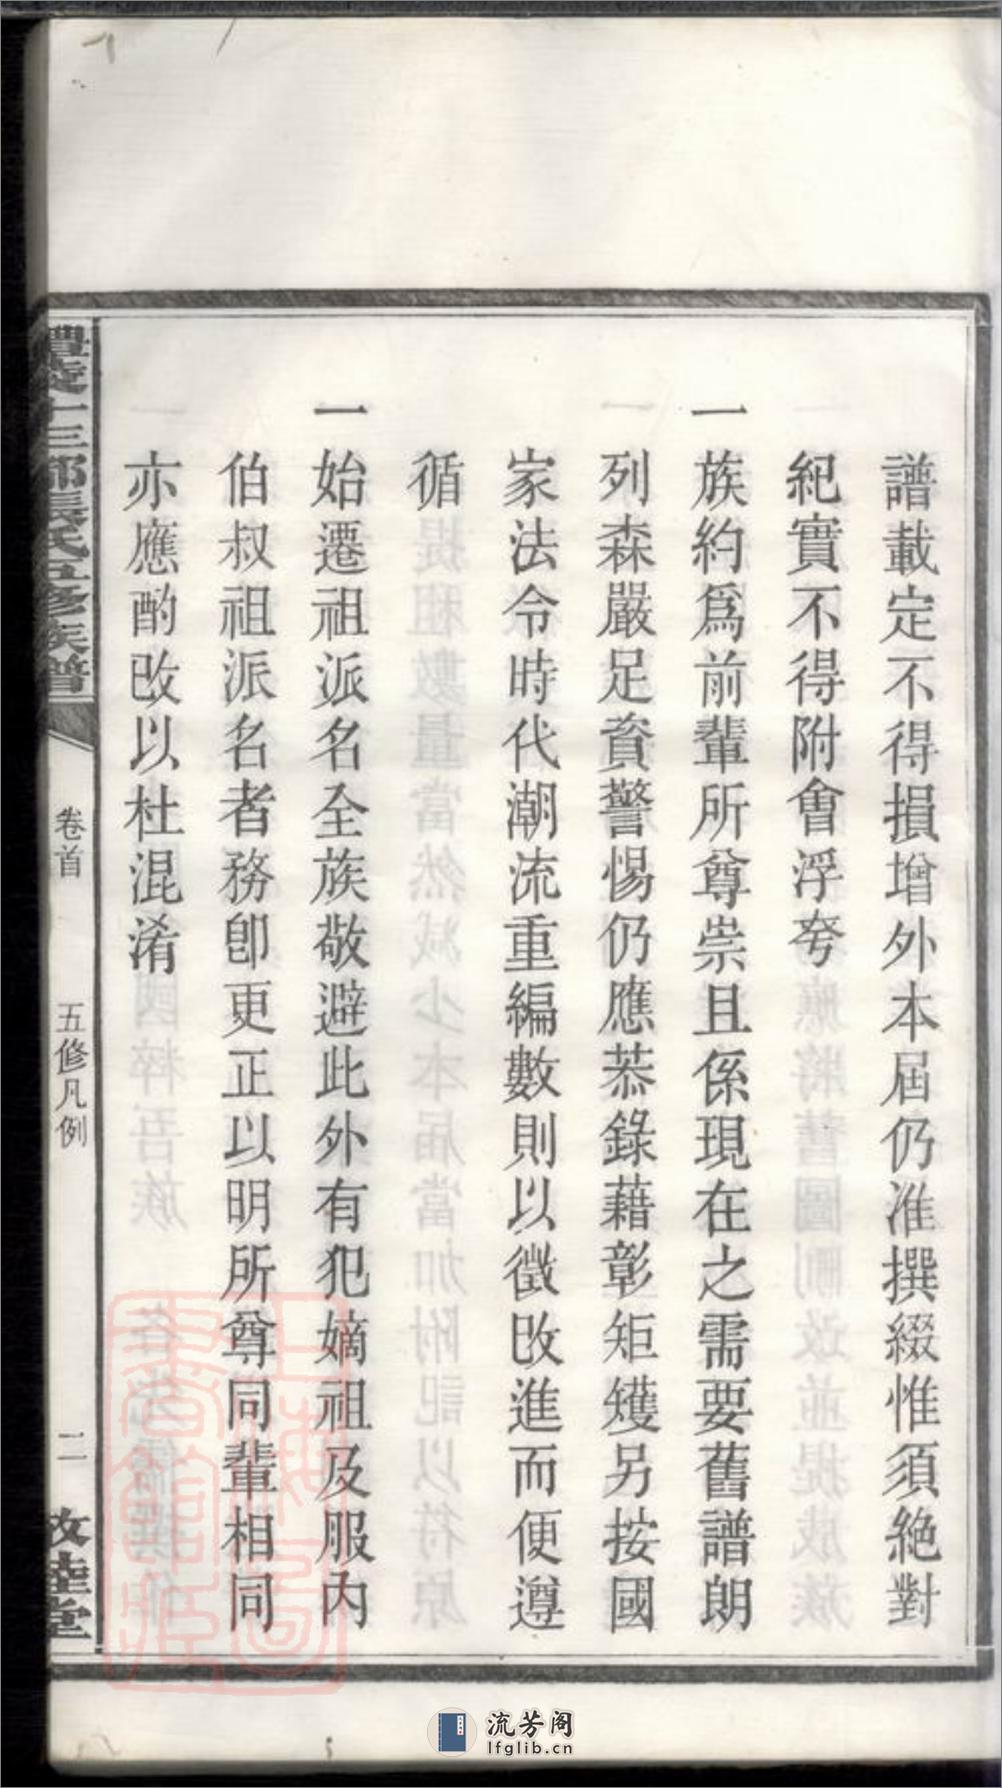 譜載定不得損增外本屆仍淮撰綴惟須絶對
紀實不得附會浮夸
一族約爲前輩所尊崇且係現在之需要舊譜朗
列森嚴足資警惕仍應恭錄藉彰矩矱另按國
家法令時代潮流重編數則以徵改進而便遵
循
一始遷祖派名全族敬避此外有犯嫡祖及服內
伯叔祖派名者務卽更正以明所尊同輩相同
亦應酌改以杜混淆
醴陵十三都張氏五修族譜
卷首
五修凡例
二
敦睦堂
流芳阁
lfglib.cn